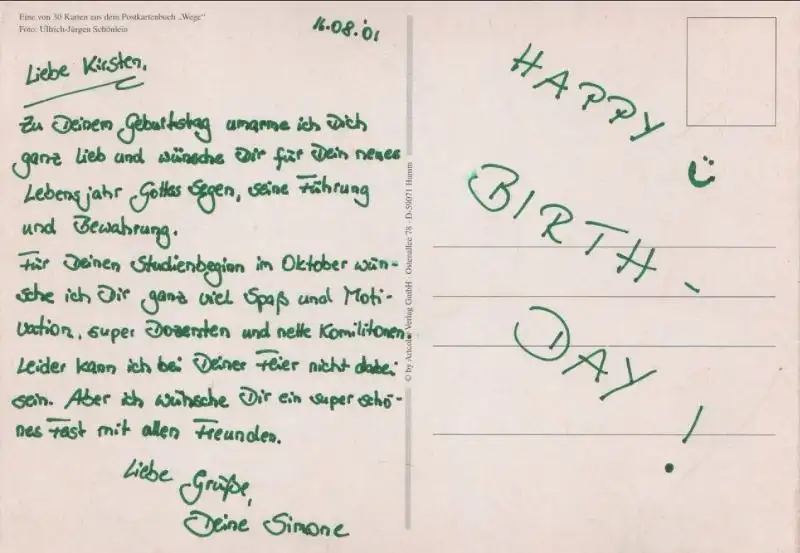 Eine von 30 Karten aus dem Postkartenbuch „Wege“
Foto: Ullrich-Jürgen Schönlein
16.08.'01
Liebe Kirsten,
Zu Deinem Geburtstag umarme ich Dich
ganz lieb und wünsche Dir für Dein neues
Lebensjahr Gottes Segen, seine Führung
und Bewahrung.
Für Deinen Studienbeginn im Oktober wün-
sche ich Dir ganz viel Spaß und Moti-
vation, super Dozenten und nette Komilitonen.
Leider kann ich bei Deiner Feier nicht dabei
sein. Aber ich wünsche Dir ein super schö-
nes Fest mit allen Freunden.
Liebe Grüße,
Deine Simone
© by Artcolor Verlag GmbH · Ostenallee 78 · D-59071 Hamm
HAPPY
BIRTH-
DAY!